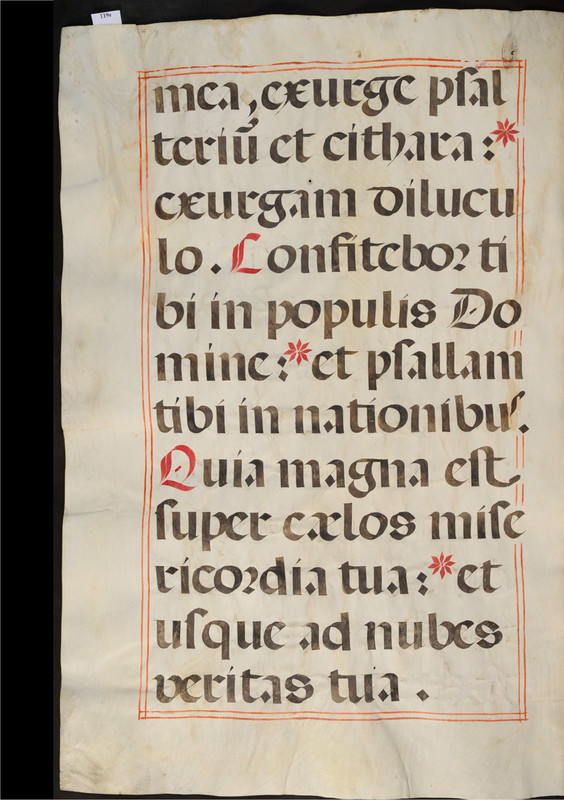 119v
mea, exurge psal
teriū et cithara :*
exurgam dilucu
lo. Confitebor ti
bi in populis Do
mine :* et psallam
tibi in nationibus.
Quia magna est
super cælos mise
ricordia tua :* et
usque ad nubes
veritas tua .